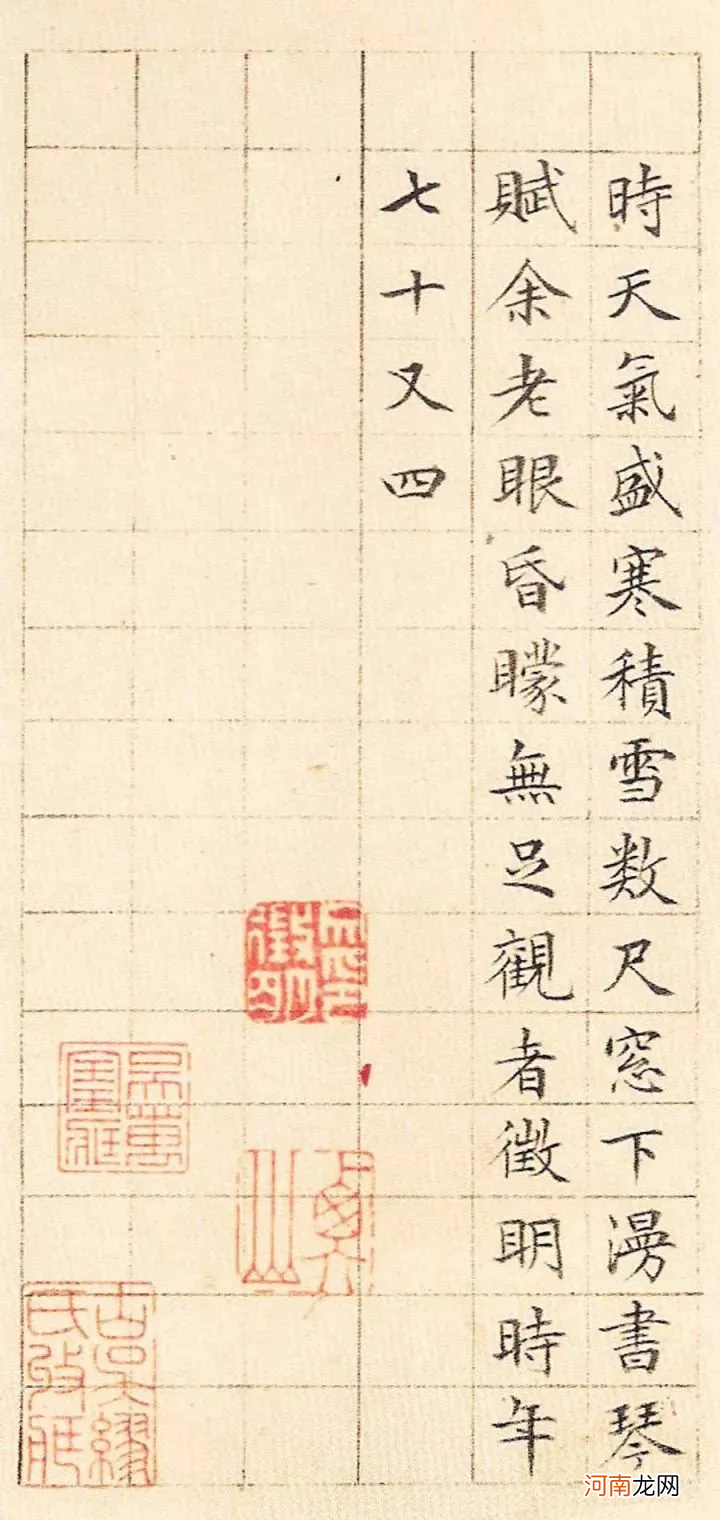 時天氣盛寒積雪数尺窓下漫書琴
賦余老眼昏曚無足觀者徵明時年
七十又四
徵明
河南龙网